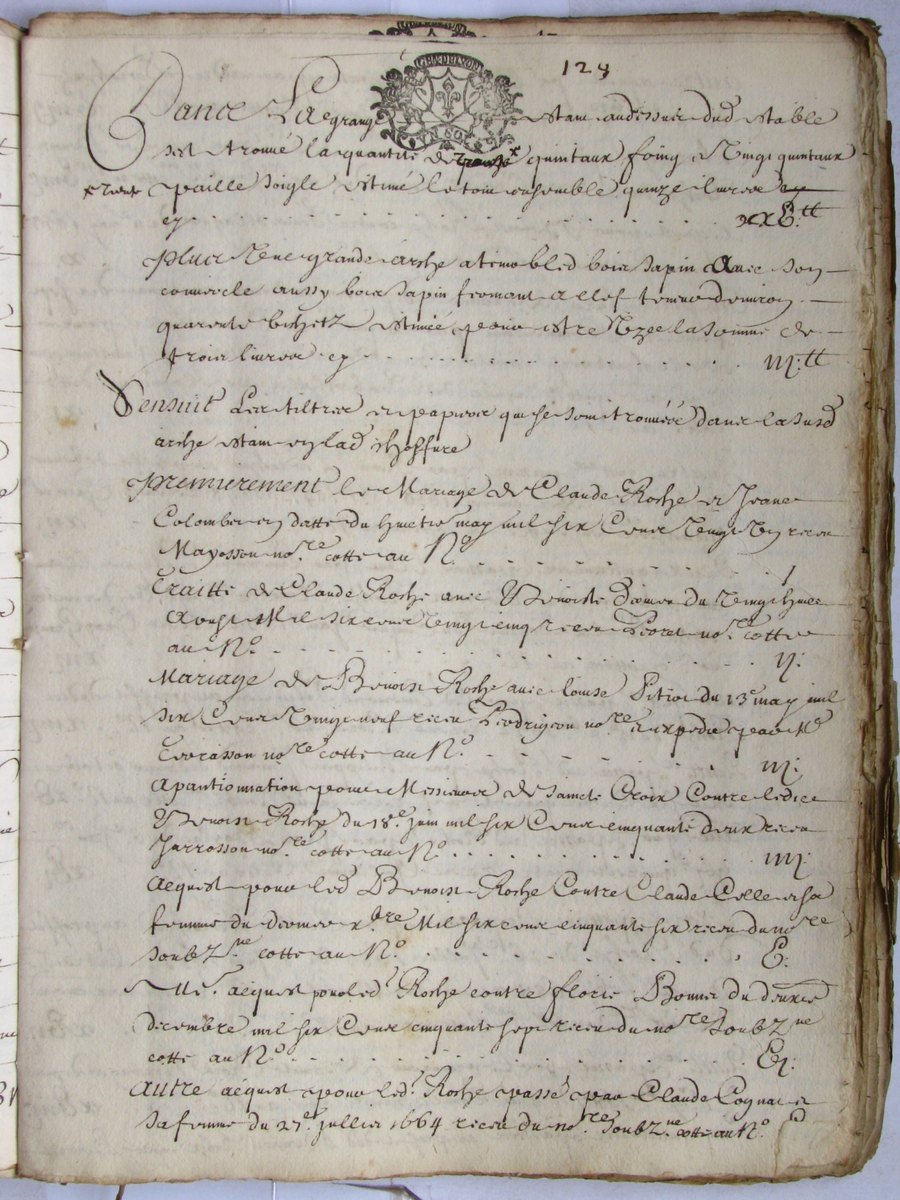 128
GEN DE LYON
UN SOL
Dans La grange estam audessus dud estable
sest trouvé la quantité de quintaux foing, Vingt quintaux
x trente paille soigle estimé le tout ensemble quinze livres
cy . . . . . . . . . . xv:tt
Plus Une grande arche bois sapin Avec son
couvercle aussy bois sapin fermant a clef tenue denviron
quarente bichetz estimée pour estre Uzee la somme de
trois livres cy . . . . . . . . . iij:tt
Sensuit Les tiltres et papiers qui se sont trouvéz dans la susd
arche estam en lad choffure
Premierement le Mariage de Claude Roche et Jeane
Colombet en datte du huctie may mil six Cens Vingt Un receu
Mayosson nore cotte au No. . . . . . . . . 1
Traitte de Claude Roche avec Benoiste du Vingt huict
Aoust Mil six cens vingt cinq receu nore. cotte
au No. . . . . . . . . . . ij:
Mariage de Benoist Roche avec Louise Pitiot du 13e may mil
six Cens Vingt neuf receu nore Expedié par Me
nore cotte au No. . . . . . . . . iij:
Apantionnation pour Messieurs de Saincte Croix Contre ledict
Benoist Roche du 18e. juin mil six Cens cinquante deux receu
Jarrosson nore. cotte au No. . . . . . . . . iiij:
Acquest pour led. Benoist Roche Contre Claude Celle et sa
femme du xbre Mil six cens cinquante six receu du nore
soubzne. cotte au No. . . . . . . . . V:
acquest pour led. Roche contre florie Bonnet du
decembre mil six Cens cinquante sept receu du nore soubzne
cotte au No. . . . . . . . . . Vj:
Autre acquest pour led. Roche passé par Claude Cognac et
sa femme du 27e. jullier 1664 receu du nore soubzne. cotte au No.